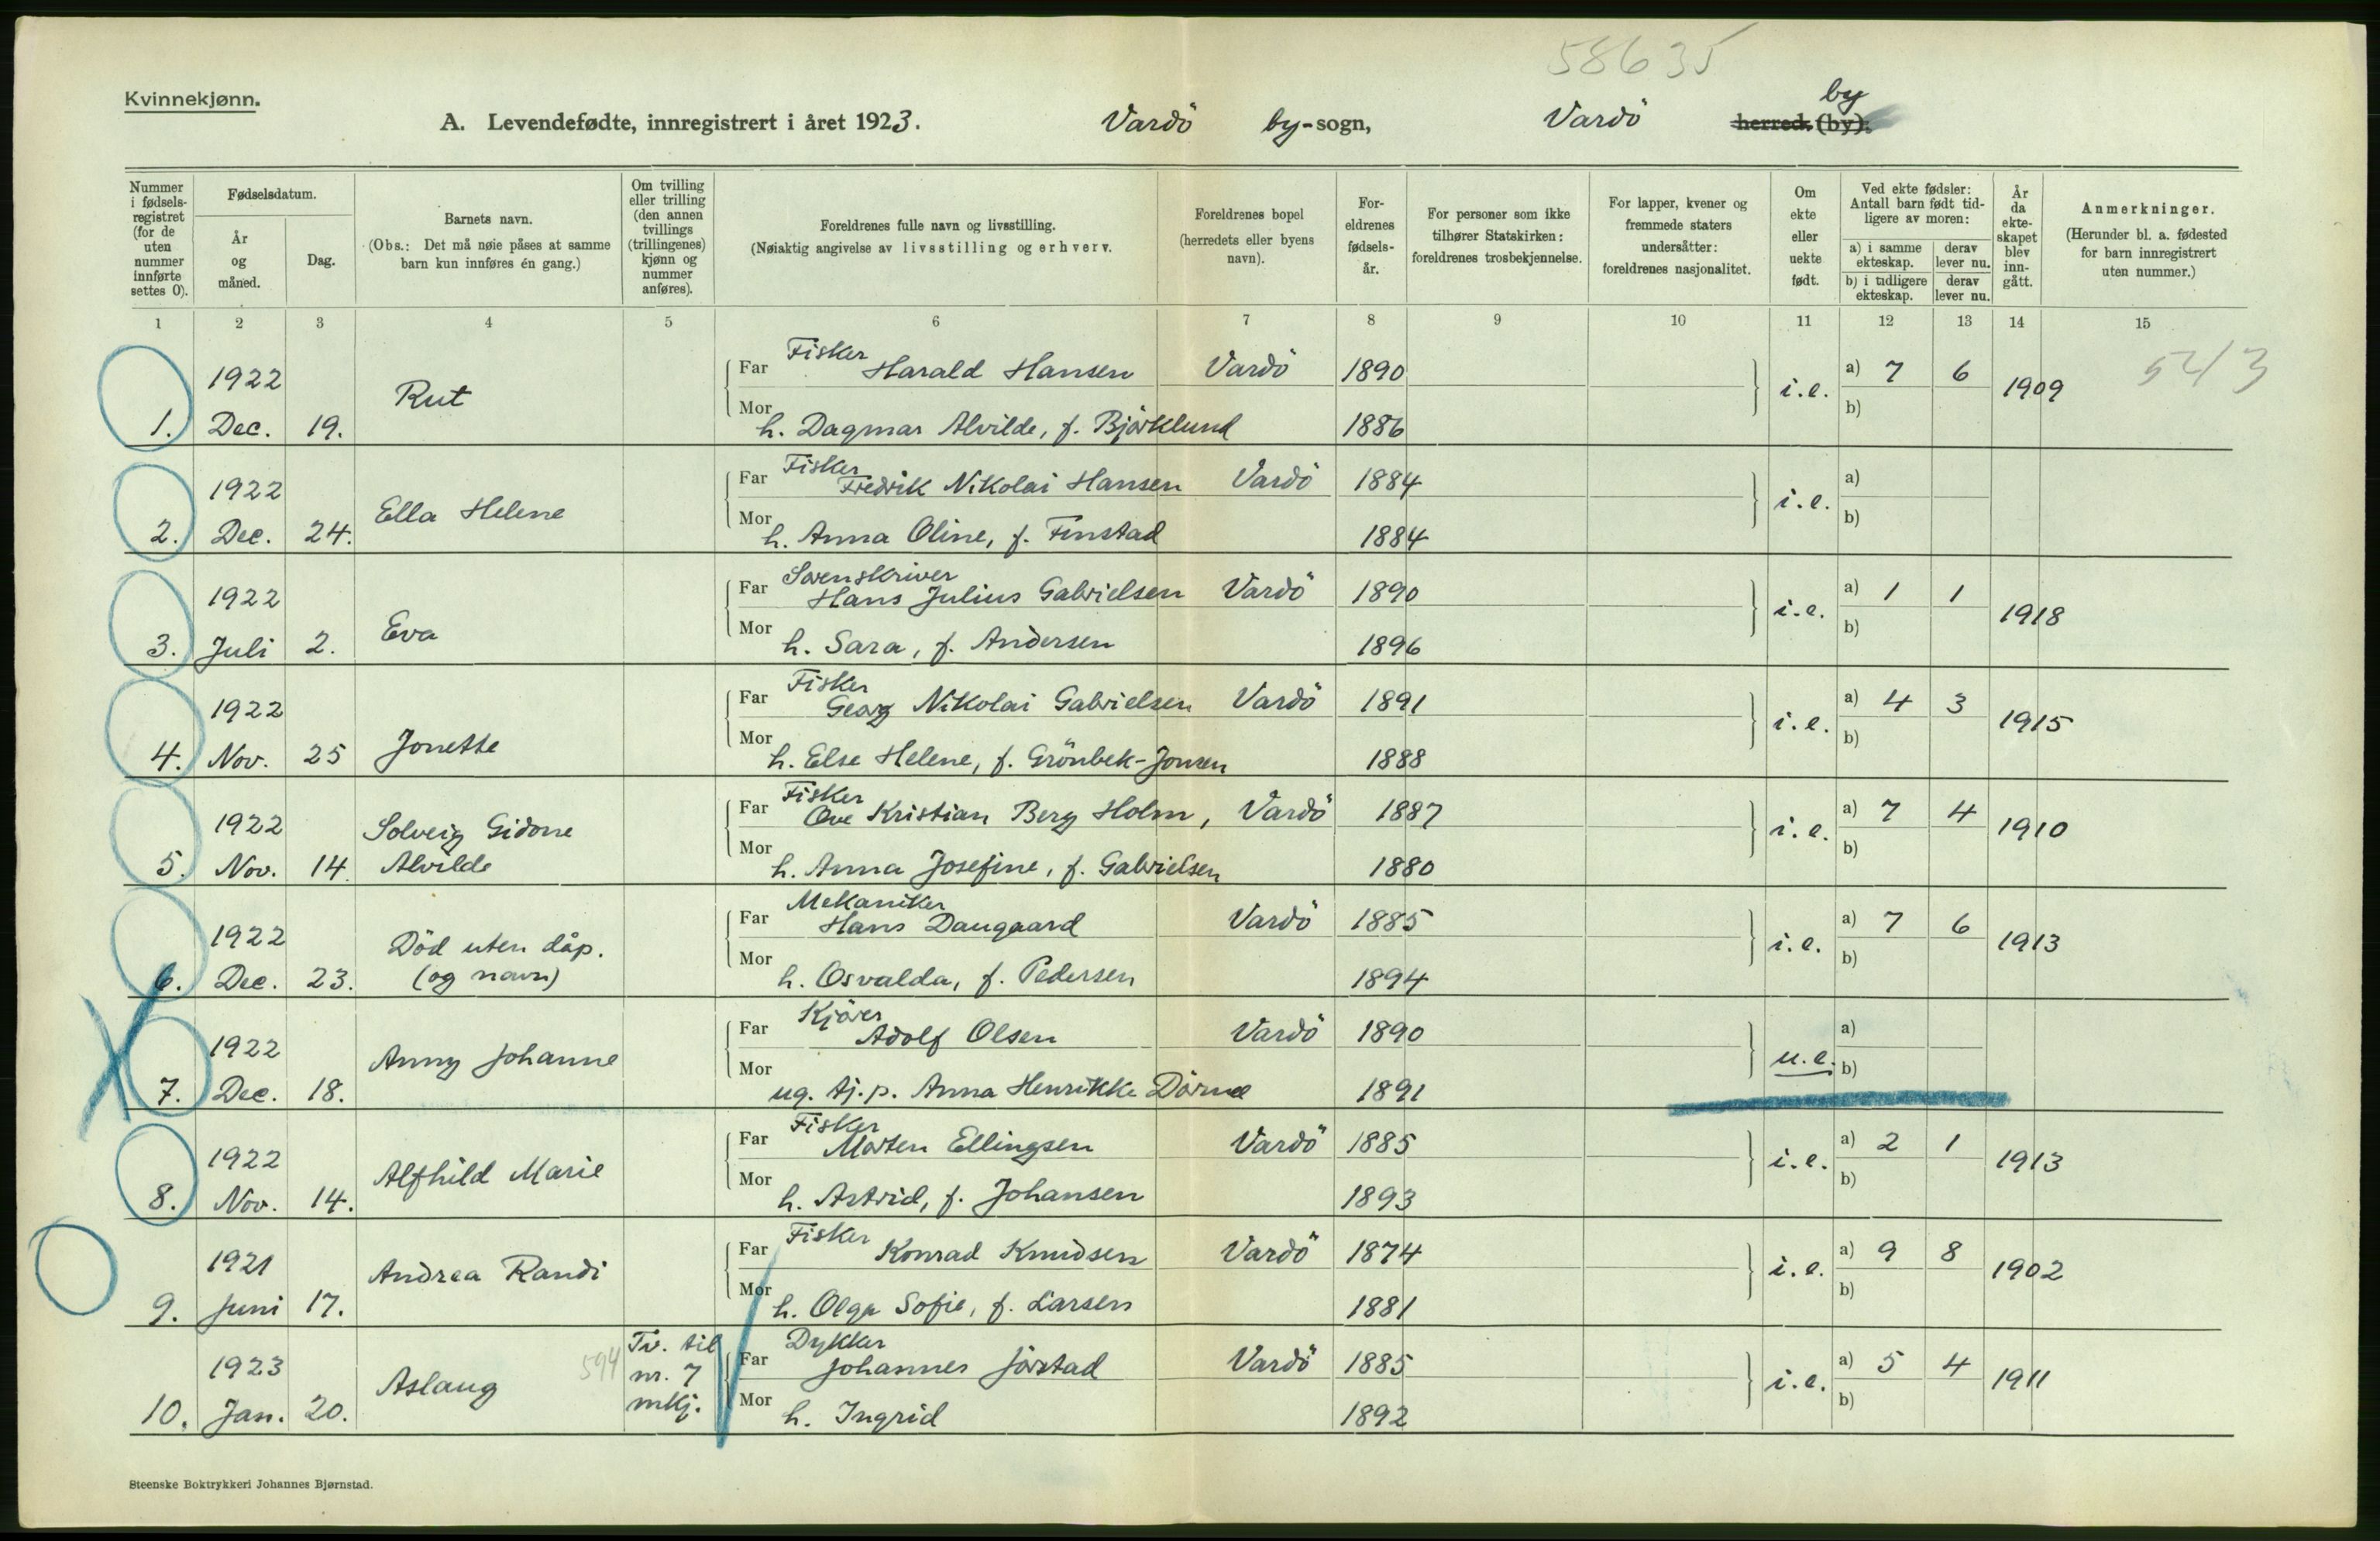 58635
Kvinnekjønn.
A. Levendefødte, innregistrert i året 1923. Vardö by-sogn, Vardö herred (by). by
Nummer i fødselsregistret (for de uten nummer innførte settes 0).
Fødselsdatum.
År og måned.
Dag.
Barnets navn.
(Obs.: Det må nøie påses at samme barn kun innføres én gang.)
Om tvilling eller trilling (den annen tvillings (trillingenes) kjønn og nummer anføres).
Foreldrenes fulle navn og livsstilling.
(Nøiaktig angivelse av livsstilling og erhverv.
Foreldrenes bopel (herredets eller byens navn).
Foreldrenes fødselsår.
For personer som ikke tilhører Statskirken: foreldrenes trosbekjennelse.
For lapper, kvener og fremmede staters undersåtter: foreldrenes nasjonalitet.
Om ekte eller uekte født.
Ved ekte fødsler: Antall barn født tidligere av moren:
a) i samme ekteskap. derav lever nu.
b) i tidligere ekteskap. derav lever nu.
År da ekteskapet blev inngått.
Anmerkninger.
(Herunder bl. a. fødested for barn innregistrert uten nummer.)
1 2 3 4 5 6 7 8 9 10 11 12 13 14 15
1. 1922 Dec. 19. Rut
Far Fisker Harald Hansen Vardö 1890 i.e. a) 7 6 1909 543
Mor h. Dagmar Alvilde, f. Björklund 1886 b)
2. 1922 Dec. 24. Ella Helene
Far Fisker Fredrik Nikolai Hansen Vardö 1884 i.e. a)
Mor h. Anna Oline, f. Finstad 1884 b)
3. 1922 Juli 2. Eva
Far Sorenskriver Hans Julius Gabrielsen Vardö 1890 i.e. a) 1 1 1918
Mor h. Sara, f. Andersen 1896 b)
4. 1922 Nov. 25 Jonette
Far Fisker Georg Nikolai Gabrielsen Vardö 1891 i.e. a) 4 3 1915
Mor h. Else Helene, f. Grönbek-Jonsen 1888 b)
5. 1922 Nov. 14. Solveig Gidone Alvilde
Far Fisker Ove Kristian Berg Holm, Vardö 1887 i.e. a) 7 4 1910
Mor h. Anna Josefine, f. Gabrielsen 1880 b)
6. 1922 Dec. 23. Död uten dåp. (og navn)
Far Mekaniker Hans Daugaard Vardö 1885 i.e. a) 7 6 1913
Mor h. Osvalda, f. Pedersen 1894 b)
7. 1922 Dec. 18. Anny Johanne
Far Kjörer Adolf Olsen Vardö 1890 u.e. a)
Mor ug. tj.p. Anna Henrikke 1891 b)
8. 1922 Nov. 14. Alfhild Marie
Far Fisker Morten Ellingsen Vardö 1885 i.e. a) 2 1 1913
Mor h. Astrid, f. Johansen 1893 b)
9. 1921 Juni 17. Andrea Randi
Far Fisker Konrad Knudsen Vardö 1874 i.e. a) 9 8 1902
Mor h. Olga Sofie, f. Larsen 1881 b)
10. 1923 Jan. 20. Aslaug 594 Tv. til nr. 7 mkj.
Far Dykker Johannes Jörstad Vardö 1885 i.e. a) 5 4 1911
Mor h. Ingrid 1892 b)
Steenske Boktrykkeri Johannes Bjørnstad.